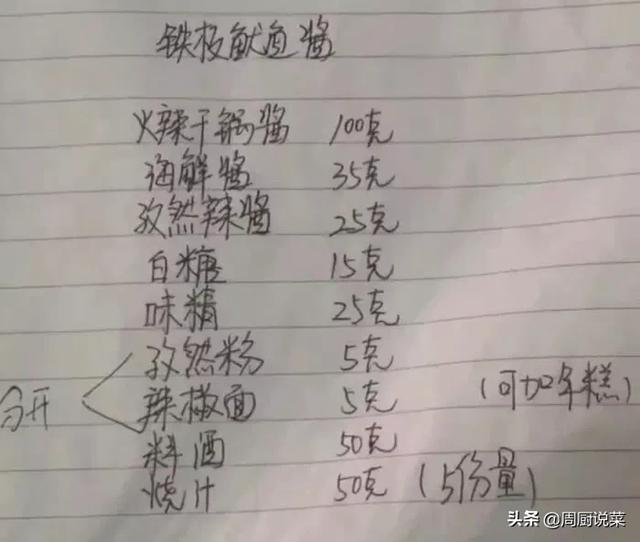 铁板鱿鱼酱
火辣干锅酱 100克
海鲜酱 35克
孜然辣酱 25克
白糖 15克
味精 25克
孜然粉 5克
分开 辣椒面 5克 (可加年糕)
料酒 50克
烧汁 50克 (5份量)
头条 @周厨说菜